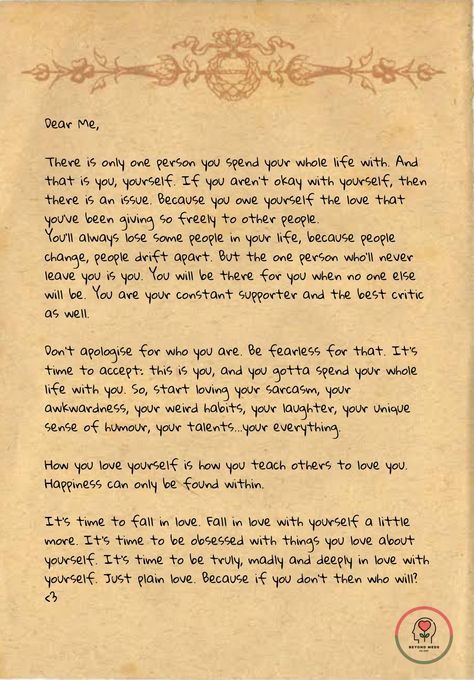 Dear Me,
There is only one person you spend your whole life with. And
that is you, yourself. If you aren't okay with yourself, then
there is an issue. Because you owe yourself the love that
you've been giving so freely to other people.
You'll always lose some people in your life, because people
change, people drift apart. But the one person who'll never
leave you is you. You will be there for you when no one else
will be. You are your constant supporter and the best critic
as well.
Don't apologise for who you are. Be fearless for that. It's
time to accept: this is you, and you gotta spend your whole
life with you. So, start loving your sarcasm, your
awkwardness, your weird habits, your laughter, your unique
sense of humour, your talents...your everything.
How you love yourself is how you teach others to love you.
Happiness can only be found within.
It's time to fall in love. Fall in love with yourself a little
more. It's time to be obsessed with things you love about
yourself. It's time to be truly, madly and deeply in love with
yourself. Just plain love. Because if you don't then who will?
<3
BEYOND MEDS